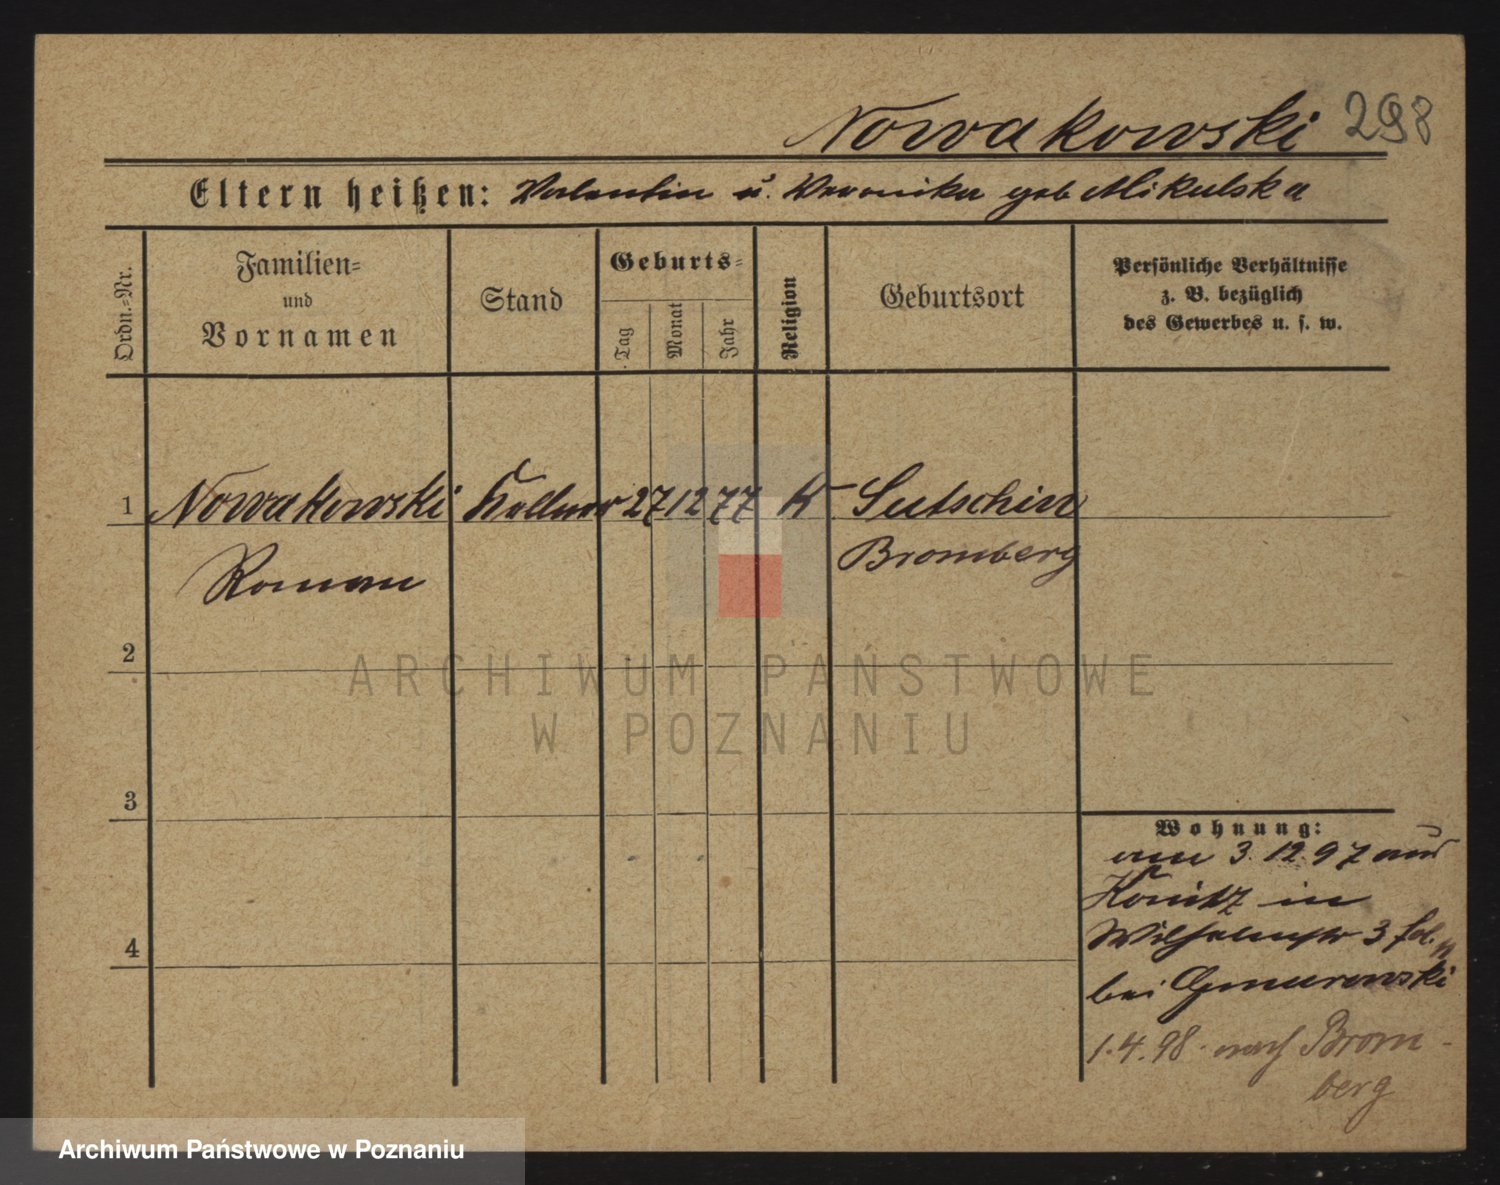 Nowakowski 298
Eltern heißen: Valentin u. Veronika geb Mikulska
Ordn.-Nr.
Familien-
und
Vornamen
Stand
Geburts-
Tag
Monat
Jahr
Religion
Geburtsort
Persönliche Verhältnisse
z. B. bezüglich
des Gewerbes u. s. w.
1 Nowakowski Kellner 27 12 77 K Lutschin
Roman Bromberg
2
ARCHIWUM PAŃSTWOWE
W POZNANIU
3
Wohnung:
am 3. 12. 97 aus
Konitz in
Wilhelmstr 3
4
bei Gmurowski
1. 4. 98. nach Brom-
berg
Archiwum Państwowe w Poznaniu